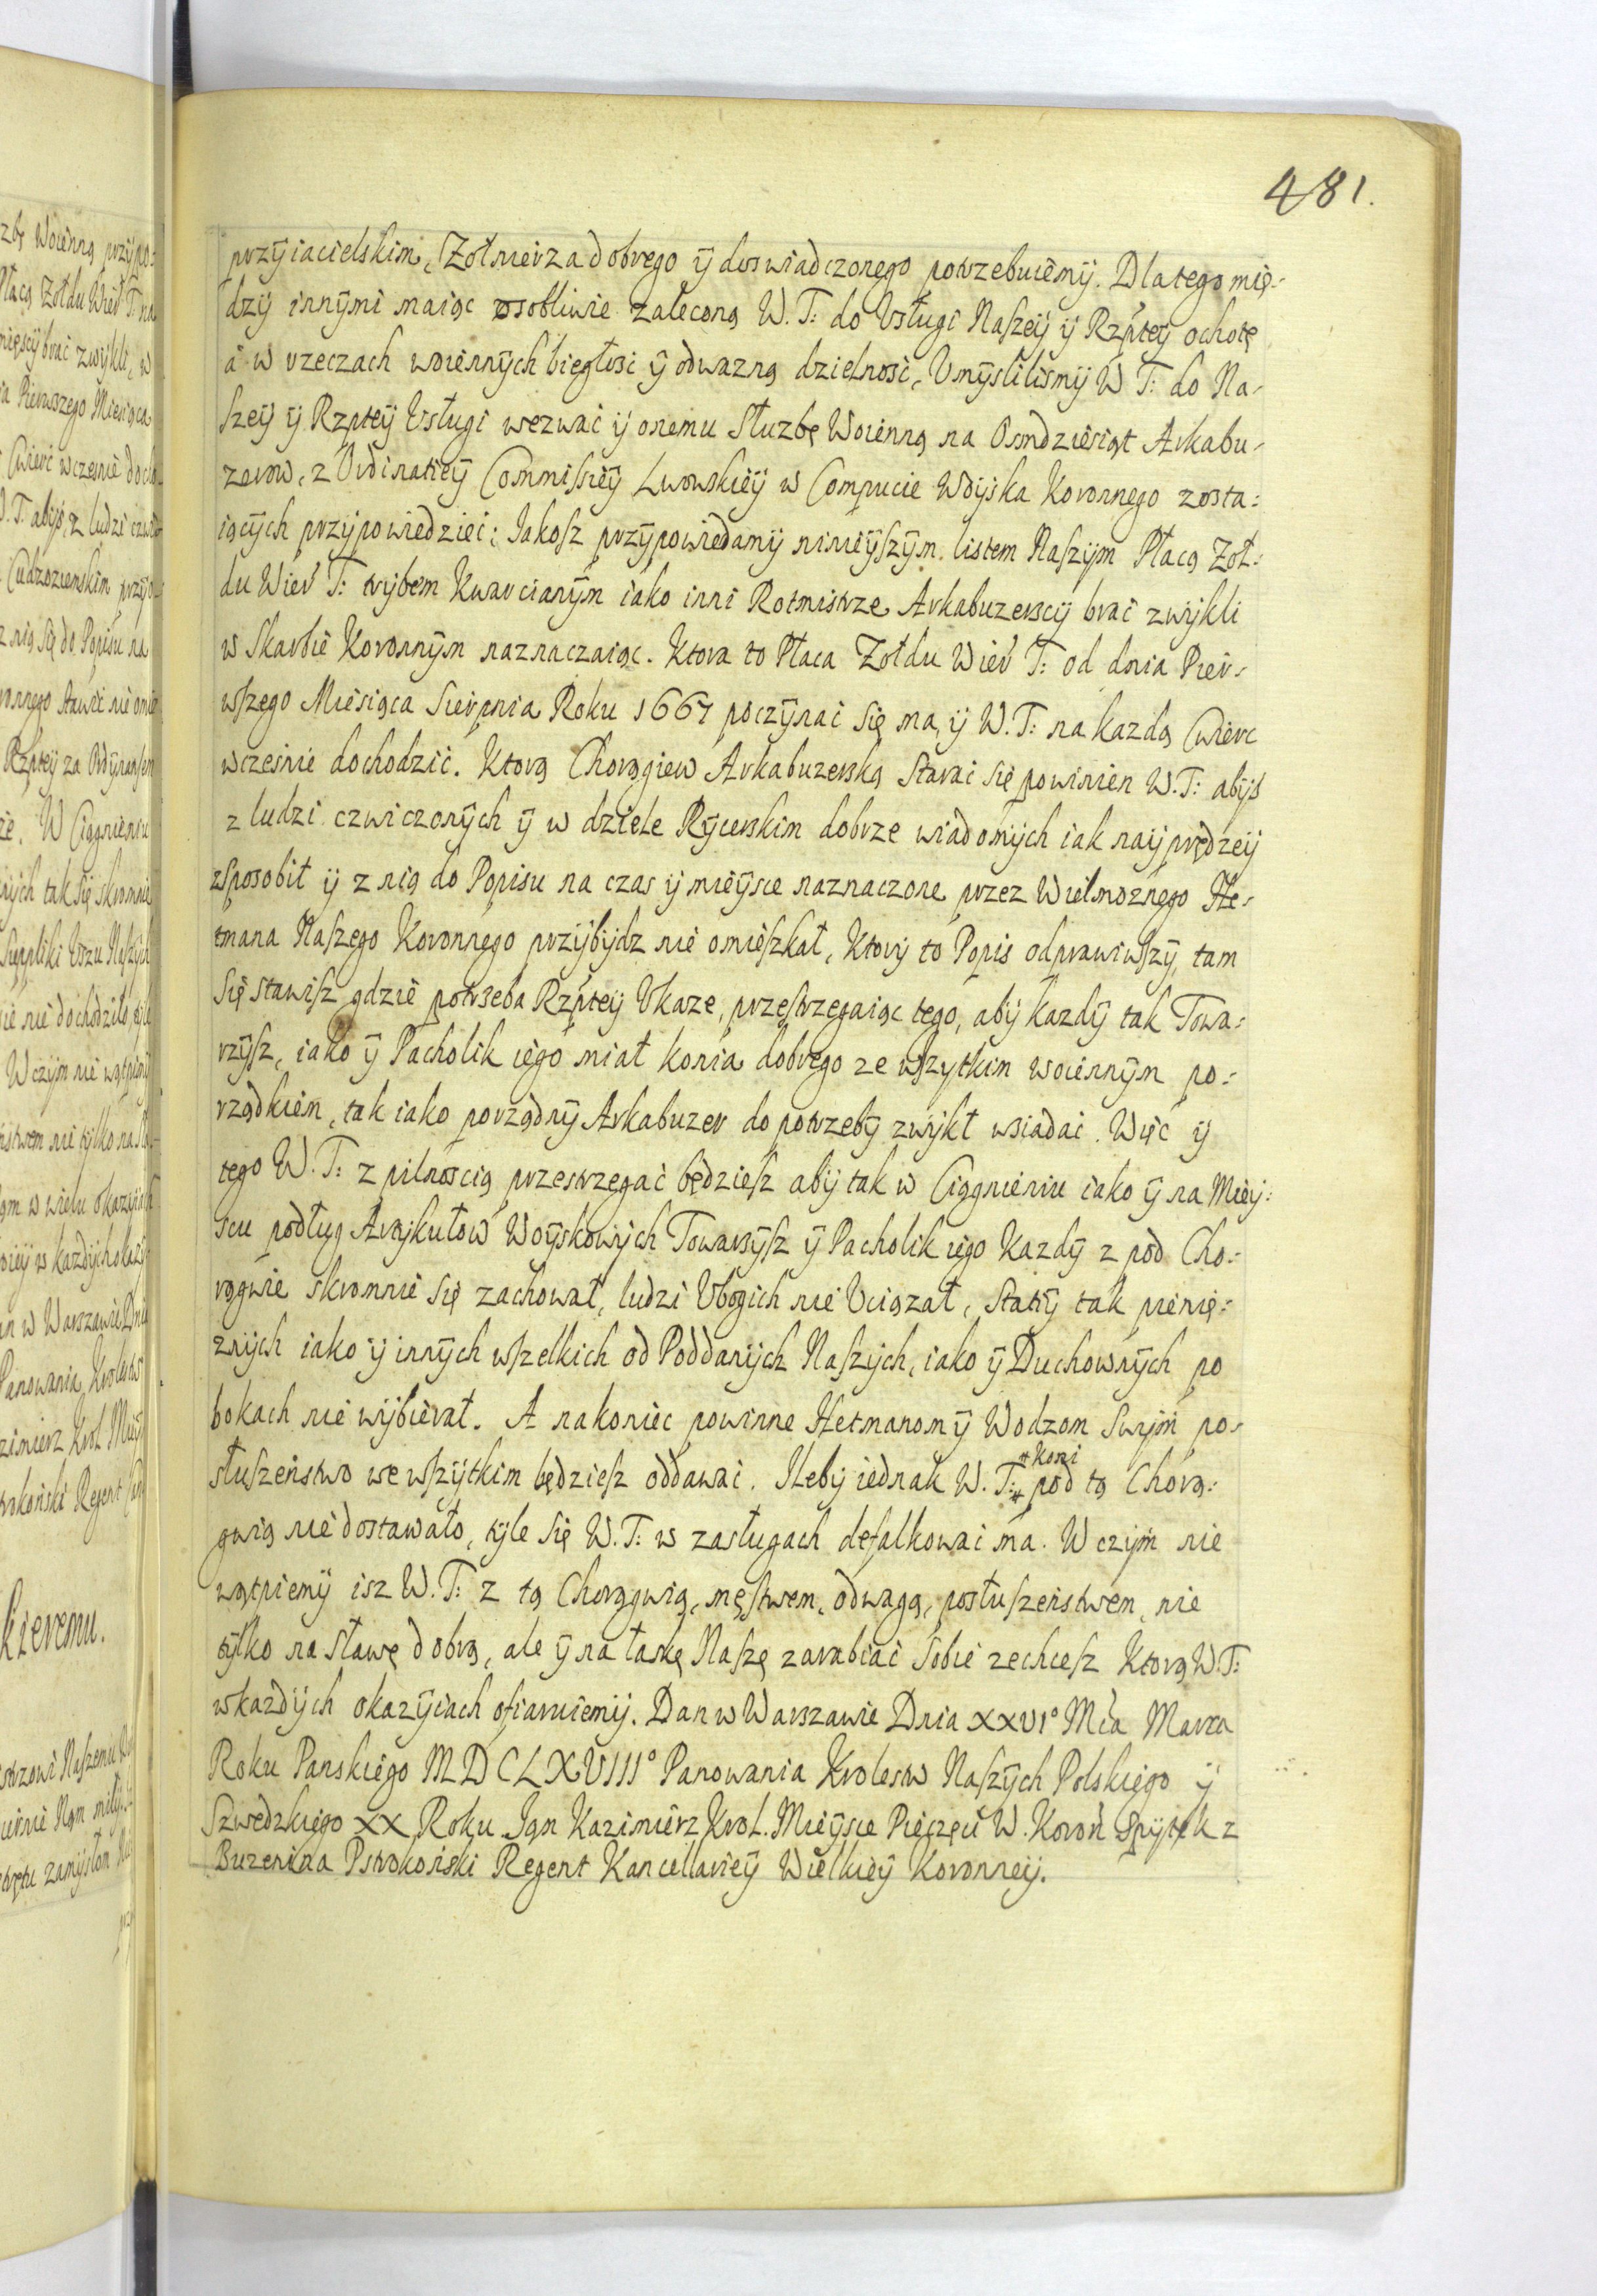 481.
przyiacielskim, Zołnierza dobrego ÿ doswiadczonego potrzebuiemÿ. Dlatego mię-
dzÿ innÿmi maiąc osobliwie zaleconą W. T: do Vsługi Naszeÿ ÿ Rzptey ochotę
á w rzeczach woiennÿch biegłosc ÿ odwazną dzielnosć, Vmÿslilismÿ W T: do Na-
szeÿ ÿ Rzpteÿ Vsługi wezwać ÿ onemu Słuzbę Woienną na Osmdziesiąt Arkabu-
zerow, z Ordinatieÿ Commissieÿ Lwowskieÿ w Compucie Woÿska Koronnego zosta-
iącÿch przÿpowiedzieć; Jakosz przÿpowiedamÿ ninieÿszÿm listem Naszÿm Płacą Zoł-
du Wier T: trÿbem Kwarcianÿm iako inni Rotmistrze Arkabuzerscÿ brać zwÿkli
w Skarbie Koronnÿm naznaczaiąc. Ktora to Płaca Zołdu Wier T: od dnia Pier-
wszego Miesiąca Sierpnia Roku 1667 poczÿnać się ma, ÿ W. T: na kazdą Cwierc
wczesnie dochodzić. Ktorą Chorągiew Arkabuzerską starać się powinien W. T: abÿs
z ludzi czwiczonÿch ÿ w dziele Rÿcerskim dobrze wiadomÿch iak naÿprędzeÿ
zsposobił ÿ z nią do Popisu na czas ÿ mieÿsce naznaczone przez Wielmoznego He-
tmana Naszego Koronnego przÿbÿdz nie omieszkał, Ktorÿ to Popis odprawiwszÿ, tam
się stawisz gdzie potrzeba Rzpteÿ Vkaze, przestrzegaiąc tego, abÿ kazdÿ tak Towa-
rzÿsz, iako ÿ Pacholik iego miał konia dobrego ze wszytkim woiennÿm po-
rządkiem, tak iako porządnÿ Arkabuzer do potrzebÿ zwÿkł wsiadać. Więc ÿ
tego W. T: z pilnoscią przestrzegać będziesz abÿ tak w Ciągnieniu iako ÿ na Mieÿ-
scu podług Artÿkułow Woÿskowÿch Towarzÿsz ÿ Pacholik iego Kazdÿ z pod Cho-
rągwie skromnie się zachował, ludzi Vbogich nie Vciązał, stacÿ tak pienię-
znÿch iako ÿ innÿch wszelkich od Poddanÿch Naszÿch, iako ÿ Duchownÿch po
bokach nie wÿbierał. A nakoniec powinne Hetmanom ÿ Wodzom Swÿm po-
słuszeństwo we wszÿtkim będziesz oddawać. Ilebÿ iednak W. T: # pod tą Chorą-
# koni
gwią nie dostawało, tÿle się W. T: w zasługach defalkować ma. W czÿm nie
wątpiemÿ isz W. T: z tą Chorągwią, męstwem, odwagą, posłuszeństwem, nie
tÿlko na sławę dobrą, ale ÿ na łaskę Naszę zarabiać sobie zechcesz Ktorą W. T:
w kazdÿch okazÿiach ofiaruiemÿ. Dan w Warszawie Dnia XXVI° Mca Marca
Roku Panskiego MDCLXVIII° Panowania Krolestw Naszÿch Polskiego ÿ
Szwedzkiego XX Roku. Jan Kazimierz Krol. Mieÿsce Pięczęci W. Koron Spÿtek z
Buzenina Pstrokoński Regent Kancellarieÿ Wielkieÿ Koronneÿ.